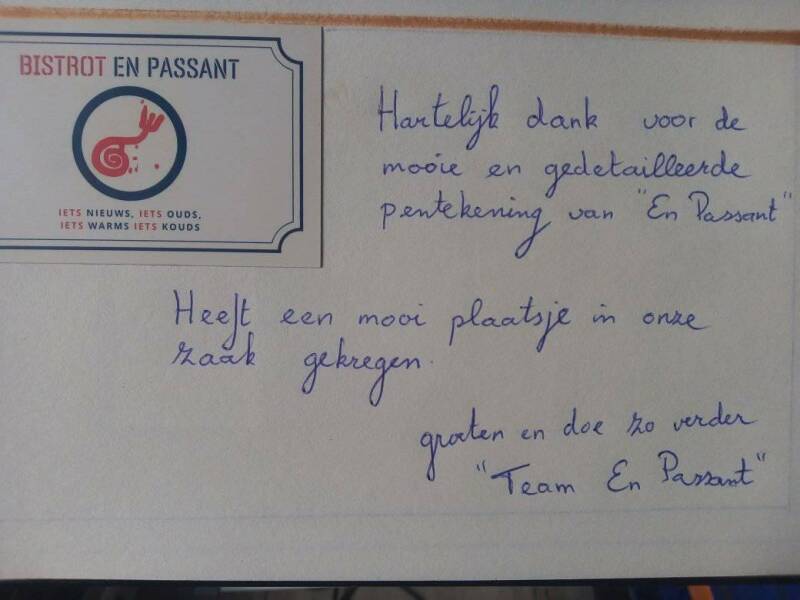 BISTROT EN PASSANT
IETS NIEUWS, IETS OUDS,
IETS WARMS IETS KOUDS
Hartelijk dank voor de
mooie en gedetailleerde
pentekening van "En Passant"
Heeft een mooi plaatsje in onze
zaak gekregen.
groeten en doe zo verder
"Team En Passant"